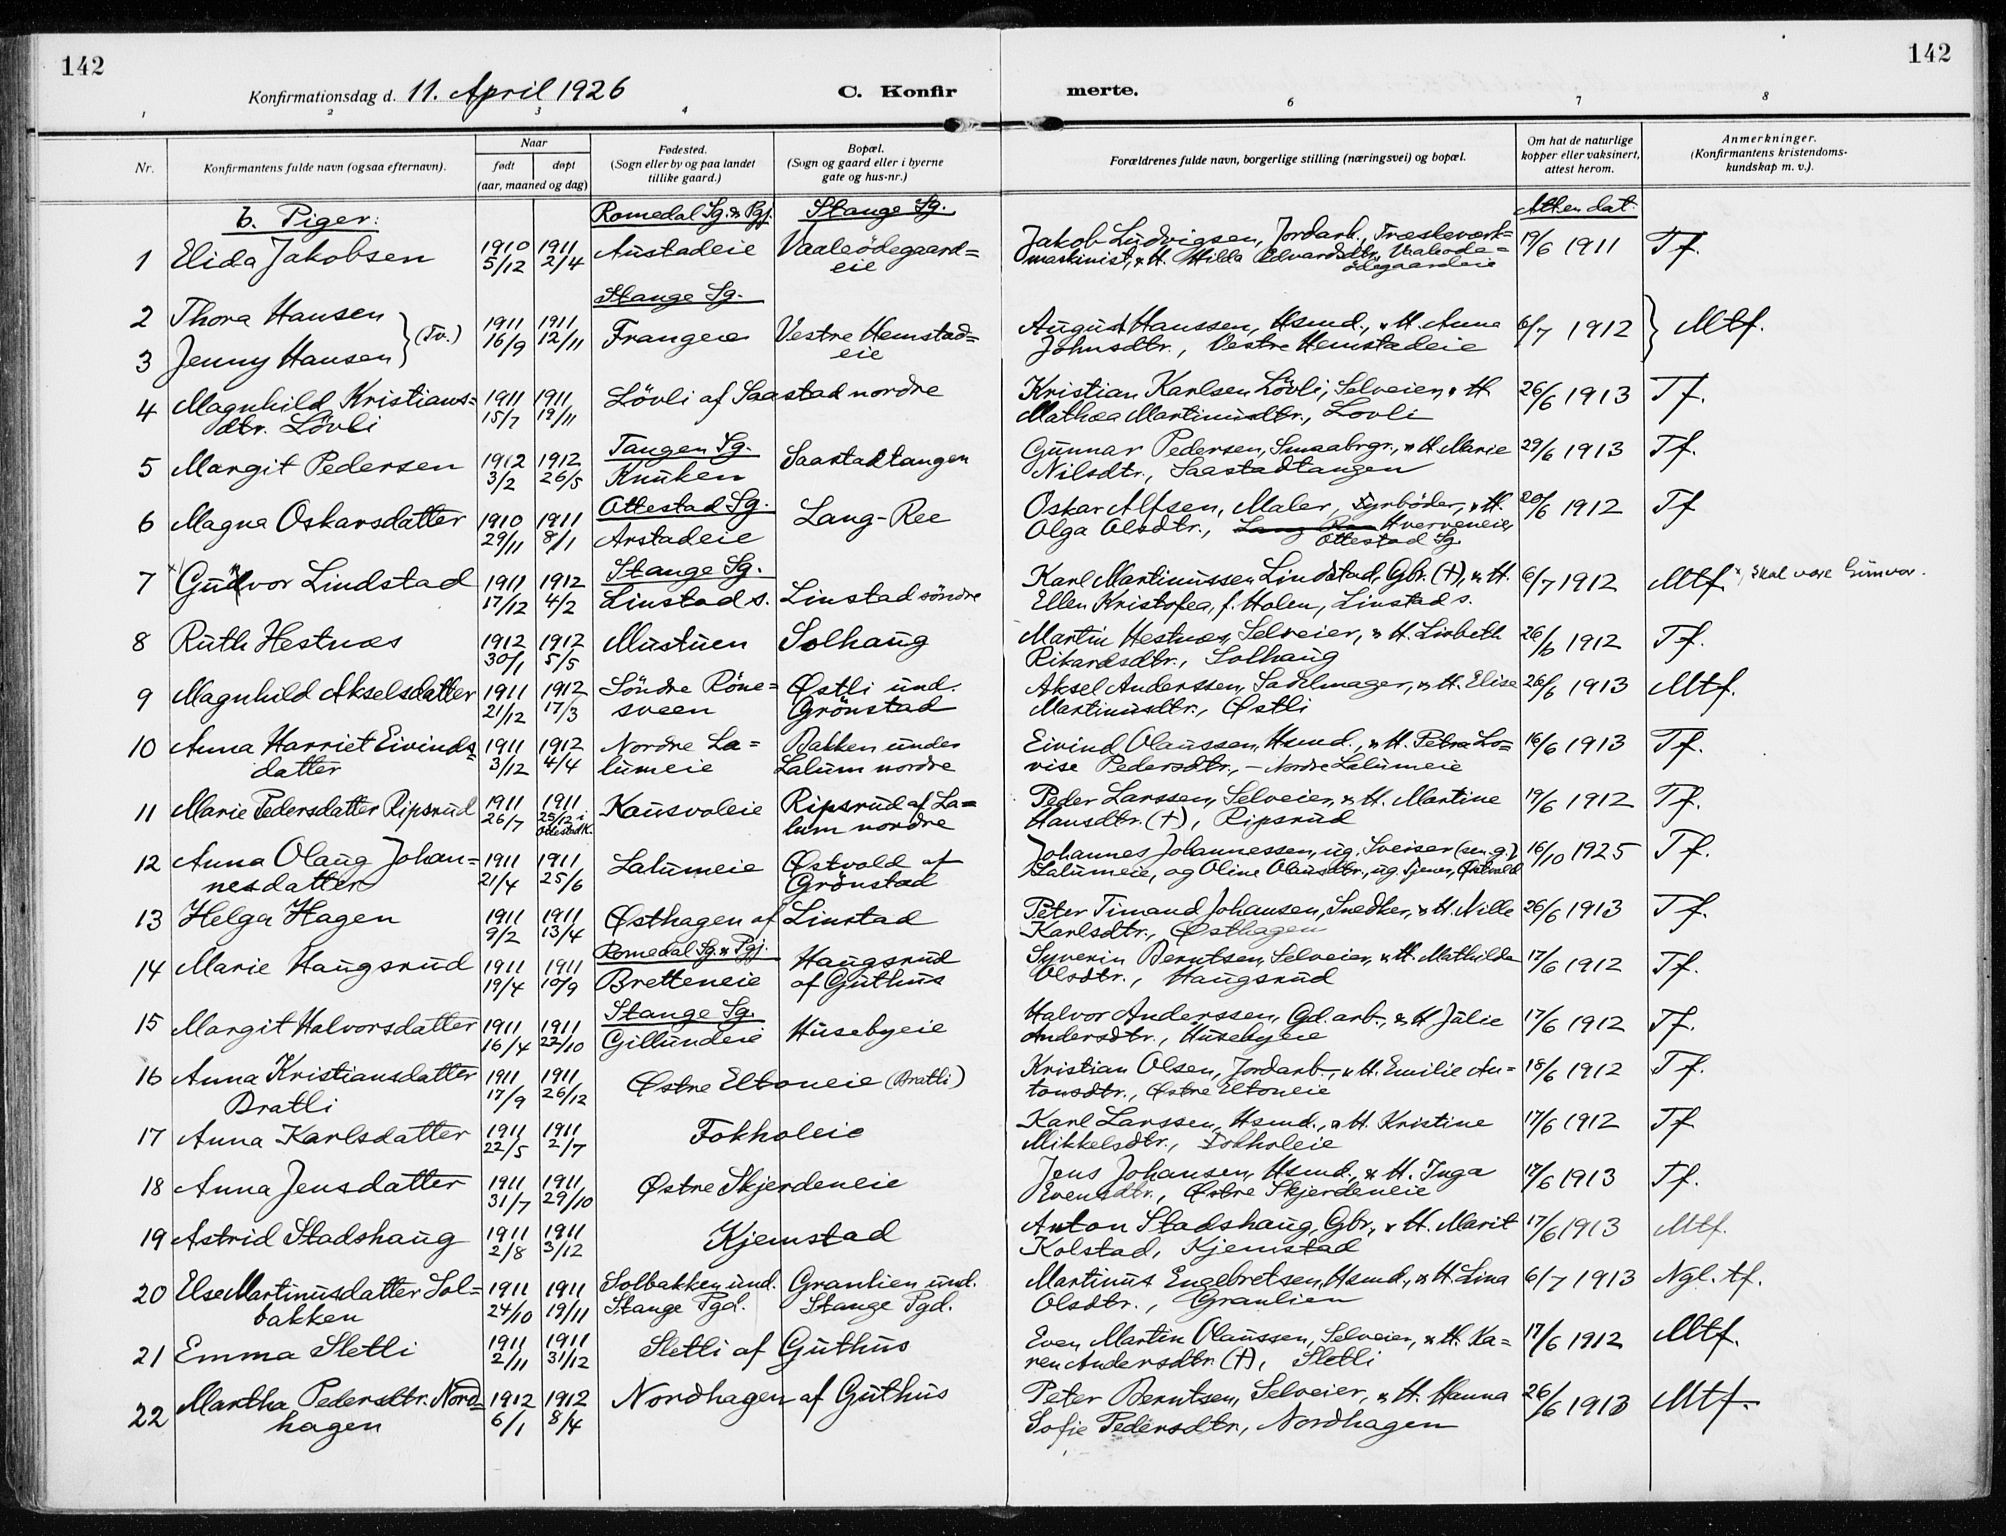 142
142
Konfirmationsdag d. 11. April 1926
C. Konfir merte.
1 2 3 4 6 7 8
Nr. Konfirmantens fulde navn (ogsaa efternavn). Naar født døpt (aar, maaned og dag) Fødested. (Sogn eller by og paa landet tillike gaard.) Bopæl. (Sogn og gaard eller i byerne gate og hus-nr.) Forældrenes fulde navn, borgerlige stilling (næringsvei) og bopæl. Om hat de naturlige kopper eller vaksinert, attest herom. Anmerkninger. (Konfirmantens kristendoms-kundskap m. v.).
b. Piger: Romedal Sg. & Pgj. Stange Sg. Att. en dat.
1 Elida Jakobsen 1910 5/12 1911 2/4 Austadeie Vaaleödegaard= Jakob Ludvigsen, Jordarb., Træskeværk= 19/6 1911 Tf.
eie maskinist, & H. Hilda Edvardsdtr., Vaaleöde=
ödegaardeie
Stange Sg.
2 Thora Hansen } (Tv.) 1911 16/9 1911 12/11 Frangeie Vestre Hemstad= August Hanssen, Hsmd., & H. Anna 6/7 1912 } Mtf.
3 Jenny Hansen eie Johnsdtr., Vestre Hemstadeie
4 Magnhild Kristians= 1911 15/7 1911 19/11 Lövli af Saastad nordre Kristian Karlsen Lövli, Selveier, & H. 26/6 1913 Tf.
dtr. Lövli Mathea Martinusdtr., Lövli
Tangen Sg.
5 Margit Pedersen 1912 3/2 1912 26/5 Knuken Saastadtangen Gunnar Pedersen, Smaabrgr., & H. Marie 29/6 1913 Tf.
Nilsdtr., Saastadtangen
Ottestad Sg.
6 Magna Oskarsdatter 1910 29/11 1911 8/1 Arstadeie Lang-Ree Oskar Alfsen, Maler, Fyrböder, & H. 20/6 1912 Tf
Olga Olsdtr., Lang Ree Hverveneie,
Ottestad Sg.
Stange Sg.
7 x) Gudvor Lindstad 1911 17/12 1912 4/2 Linstad s. Linstad söndre Karl Martinussen Lindstad, Gbr. (†), & H. 6/7 1912 Mtf x) skal være Gunvor.
Ellen Kristofea, f. Holen, Linstad s.
8 Ruth Hestnæs 1912 30/1 1912 5/5 Mustuen Solhaug Martin Hestnæs, Selveier, & H. Lisbeth 26/6 1912 Tf.
Rikardsdtr., Solhaug
9 Magnhild Akselsdatter 1911 21/12 1912 17/3 Söndre Röne= Østli und. Aksel Anderssen, Sadelmager, & H. Elise 26/6 1913 Mtf.
sveen Grönstad Martinusdtr., Østli
10 Anna Harriet Eivinds= 1911 3/12 1912 4/4 Nordre La= Bakken under Eivind Olaussen, Hsmd., & H. Petra Lo= 16/6 1913 Tf.
datter lumeie Lalum nordre vise Pedersdtr., – Nordre Lalumeie
11 Marie Pedersdatter Ripsrud 1911 26/7 1911 25/12 i Ottestad K. Kausvoleie Ripsrud af La= Peder Larssen, Selveier, & H. Martine 19/6 1912 Tf.
lum nordre Hansdtr. (†), Ripsrud
12 Anna Olaug Johan= 1911 21/4 1911 25/6 Lalumeie Østvold af Johannes Johannessen, ug. Sveiser (sen. g.) 16/10 1925 Tf.
nesdatter Grönstad Lalumeie, og Oline Olausdtr., ug. Tjener, Östvold
13 Helga Hagen 1911 9/2 1911 13/4 Østhagen af Linstad Peter Timand Johansen, Snedker, & H. Nille 26/6 1913 Tf.
Karlsdtr., Østhagen
Romedal Sg. & Pgj.
14 Marie Haugsrud 1911 19/4 1911 10/9 Bretteneie Haugsrud Syverin Berntsen, Selveier, & H. Mathilda 17/6 1912 Tf.
af Guthus Olsdtr., Haugsrud
Stange Sg.
15 Margit Halvorsdatter 1911 16/4 1911 22/10 Gillundeie Husebyeie Halvor Anderssen, Gd.arb., & H. Julie 17/6 1912 Tf.
Andersdtr., Husebyeie
16 Anna Kristiansdatter 1911 17/9 1911 26/12 Østre Eltoneie (Bratli) Kristian Olsen, Jordarb., & H. Emilie An- 18/6 1912 Tf.
Bratli tonsdtr., Østre Eltoneie
17 Anna Karlsdatter 1911 22/5 1911 2/7 Fokholeie Karl Larssen, Hsmd., & H. Kristine 17/6 1912 Tf.
Mikkelsdtr., Fokholeie
18 Anna Jensdatter 1911 31/7 1911 29/10 Østre Skjerdeneie Jens Johansen, Hsmd., & H. Inga 17/6 1913 Tf.
Evensdtr., Østre Skjerdeneie
19 Astrid Stadshaug 1911 2/8 1911 3/12 Kjemstad Anton Stadshaug, Gbr., & H. Marit 17/6 1913 Mtf.
Kolstad, Kjemstad
20 Else Martinusdatter Sol= 1911 24/10 1911 19/11 Solbakken und. Granlien und. Martinus Engebretsen, Hsmd., & H. Lina 6/7 1913 Ngl. tf.
bakken Stange Pgd. Stange Pgd. Olsdtr., Granlien
21 Emma Sletli 1911 2/11 1911 31/12 Sletli af Guthus Even Martin Olaussen, Selveier, & H. Ka= 17/6 1912 Mtf.
ren Andersdtr. (†), Sletli
22 Martha Pedersdtr. Nord= 1912 6/1 1912 8/4 Nordhagen af Guthus Peter Berntsen, Selveier, & H. Hanna 26/6 1913 Mtf.
hagen Sofie Pedersdtr., Nordhagen